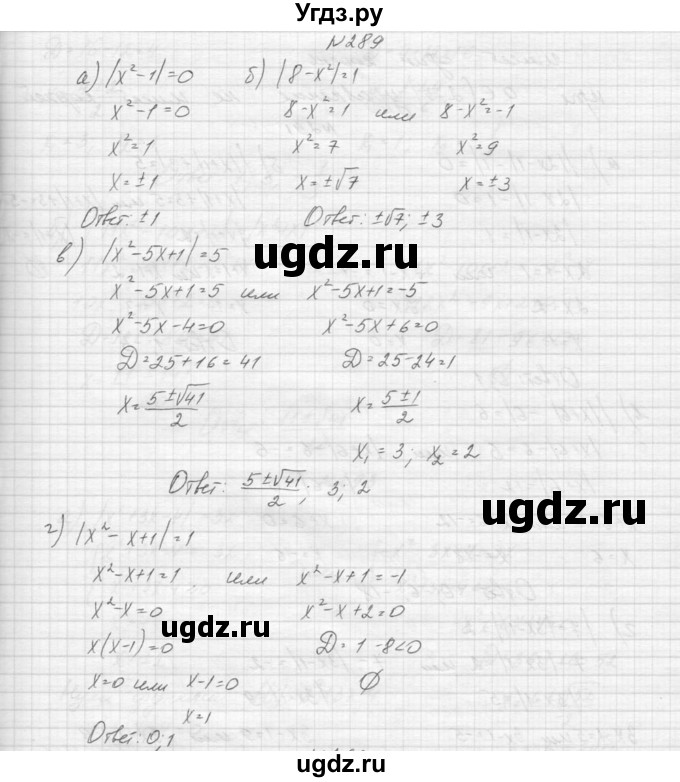 Угдз.ру
№289
а) |x²-1|=0 б) |8-x²|=1
x²-1=0 8-x²=1 или 8-x²=-1
x²=1 x²=7 x²=9
x=±1 x=±√7 x=±3
Ответ: ±1 Ответ: ±√7; ±3
в) |x²-5x+1|=5
ugdz.ru
x²-5x+1=5 или x²-5x+1=-5
x²-5x-4=0 x²-5x+6=0
D=25+16=41 D=25-24=1
x=(5±√41)/2 x=(5±1)/2
x₁=3; x₂=2
Ответ: (5±√41)/2; 3; 2
ugdz.ru
г) |x²-x+1|=1
x²-x+1=1 или x²-x+1=-1
x²-x=0 x²-x+2=0
ugdz.ru
x(x-1)=0 D=1-8<0
x=0 или x-1=0 ∅
x=1
Ответ: 0;1
ugdz.ru